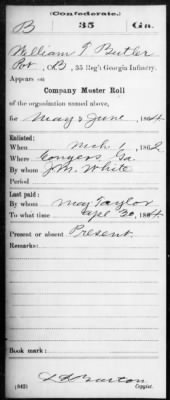 (Confederate.)
B 35 Ga.
William F Butler
Pvt, Co. B, 35 Reg't Georgia Infantry.
Appears on
Company Muster Roll
of the organization named above,
for May & June, 1864.
Enlisted:
When Mch 1, 1862
Where Conyers, Ga.
By whom J.M. White
Period
Last paid:
By whom Maj Taylor
To what time Apl 30, 1864.
Present or absent Present.
Remarks:
Book mark:
(642) Copyist.